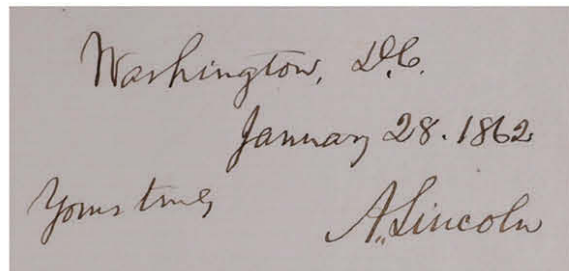 Washington, D.C.
January 28. 1862
Yours truly
A. Lincoln